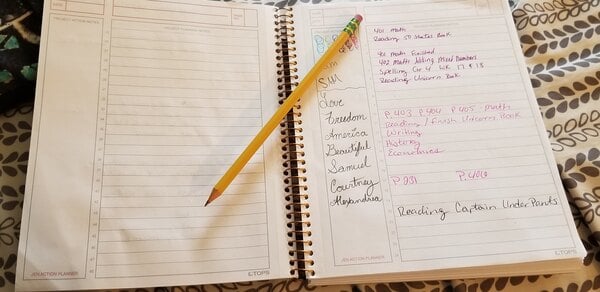 PROJECT ACTION NOTES
JEN ACTION PLANNER
TOPS
401 Math
Reading 50 States Book
401 Math Finished
402 Math Adding Mixed Numbers
Spelling Gr 4 WK 17 & 18
Reading Unicorn Book
Still
Love
Freedom
America
Beautiful
Samuel
Courtney
Alexandrea
P.403 P.404 P.405 Math
Reading / finish Unicorn Book
Writing
History
Economics
P.231 P.406
Reading Captain UnderPants
JEN ACTION PLANNER
TOPS